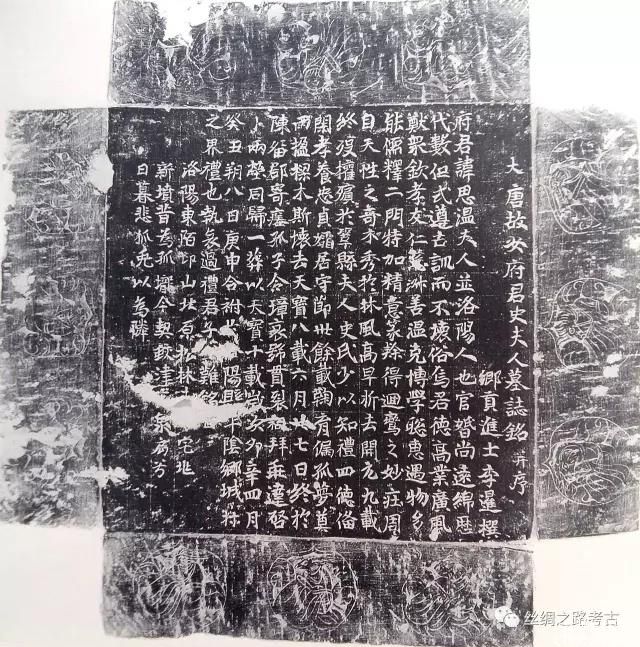 大唐故安府君史夫人墓誌銘 并序
鄉貢進士李暹撰
府君諱思溫夫人並洛陽人也官婚尚遠綿歷
代數但式遵古訓而不壞俗焉君德高業廣風
猷衆欽孝友仁慈淋善溫克博學聡惠遇物多
能儒釋二門特加精意篆隸得迴鸞之妙莊周
自天性之奇木秀於林風高早折去開元九載
終殯權殯於鞏縣夫人史氏少以知禮四德俻
閑孝養忠貞孀居守節卅餘載鞠育偏孤夢奠
兩楹樑木斯懷去天寶八載六月廿七日終於
陳留郡寄瘞孤子令璋哀號裂稽拜乖違啓
卜兩塋同歸一葬以天寶十載歲次卯辛四月
癸丑朔八日庚申合祔陽縣平陰鄉城村
之界禮也執哀過禮君子難銘
洛陽東陌邙山北原松林宅兆
新墳昔為孤壠今契飲津
日暮悲狐兔以為隣
丝绸之路考古